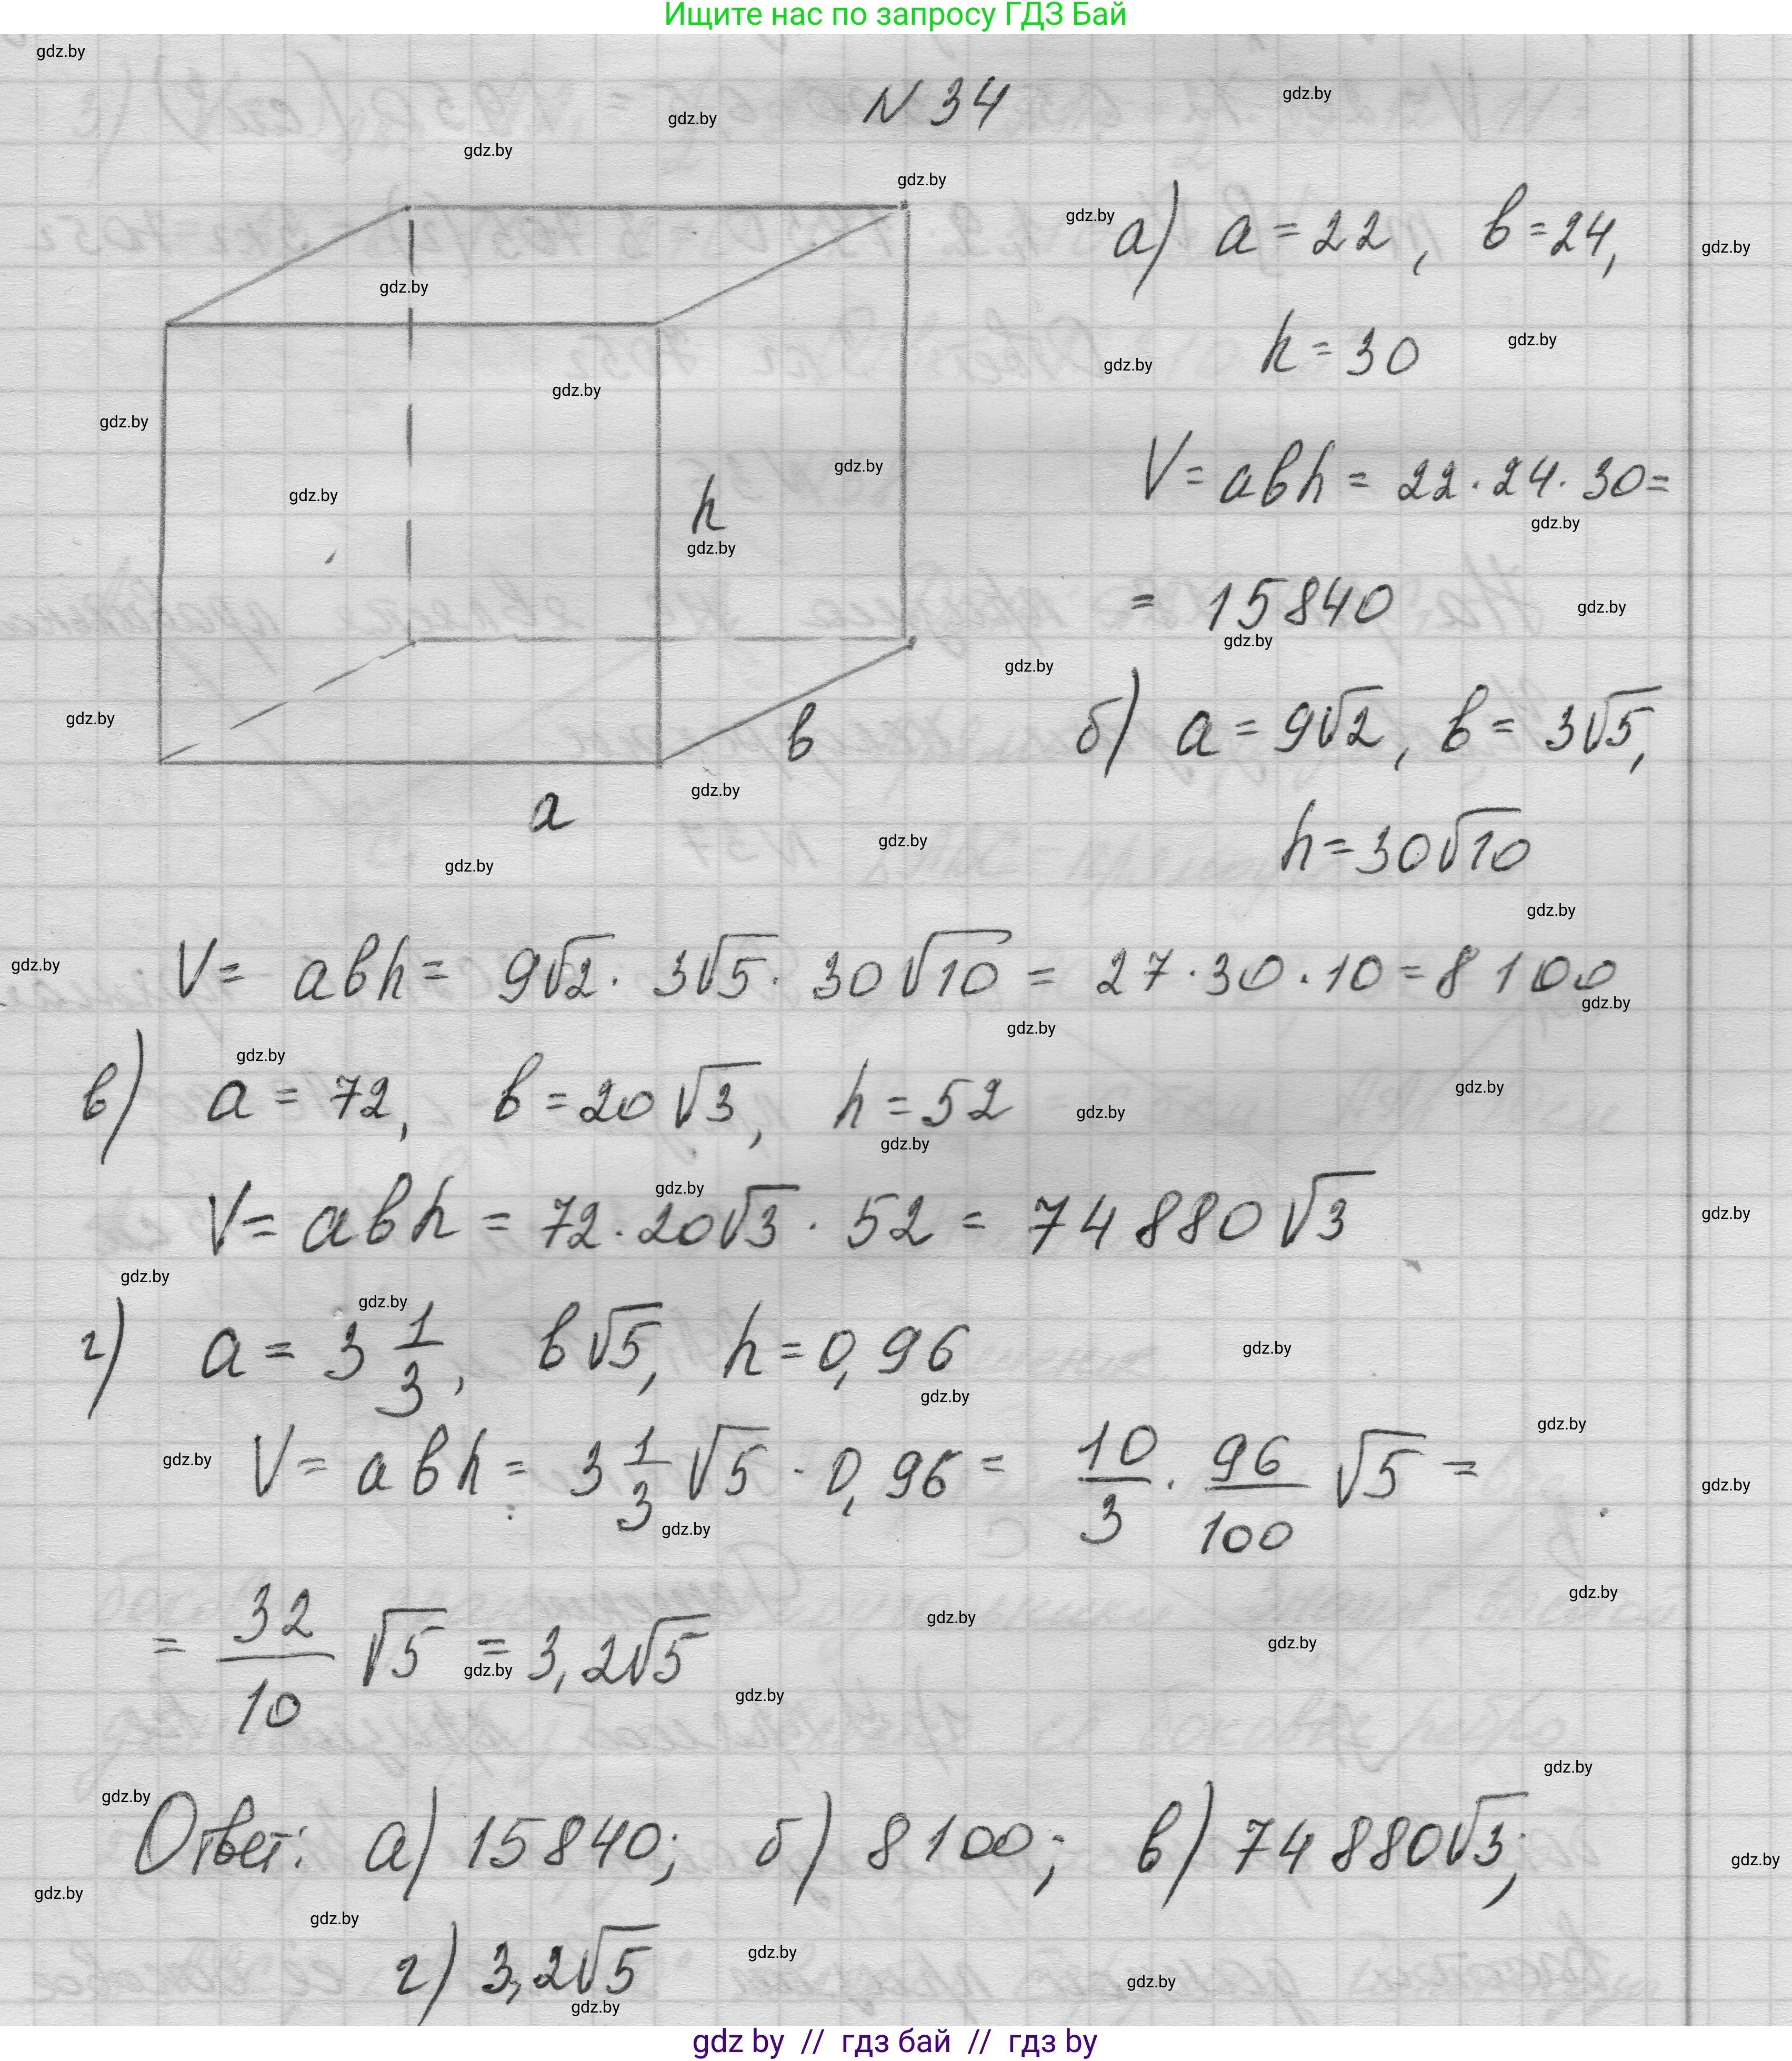 Ищите нас по запросу ГДЗ Бай
N 34
а) a = 22, b = 24,
h = 30
V = abh = 22 · 24 · 30 =
= 15840
h
b
a
б) a = 9√2, b = 3√5,
h = 30√10
V = abh = 9√2 · 3√5 · 30√10 = 27 · 30 · 10 = 8100
в) a = 72, b = 20√3, h = 52
V = abh = 72 · 20√3 · 52 = 74880√3
г) a = 3 1/3, b√5, h = 0,96
V = abh = 3 1/3 √5 · 0,96 = 10/3 · 96/100 √5 =
= 32/10 √5 = 3,2√5
Ответ: а) 15840; б) 8100; в) 74880√3;
г) 3,2√5
gdz by // гдз бай // гдз by